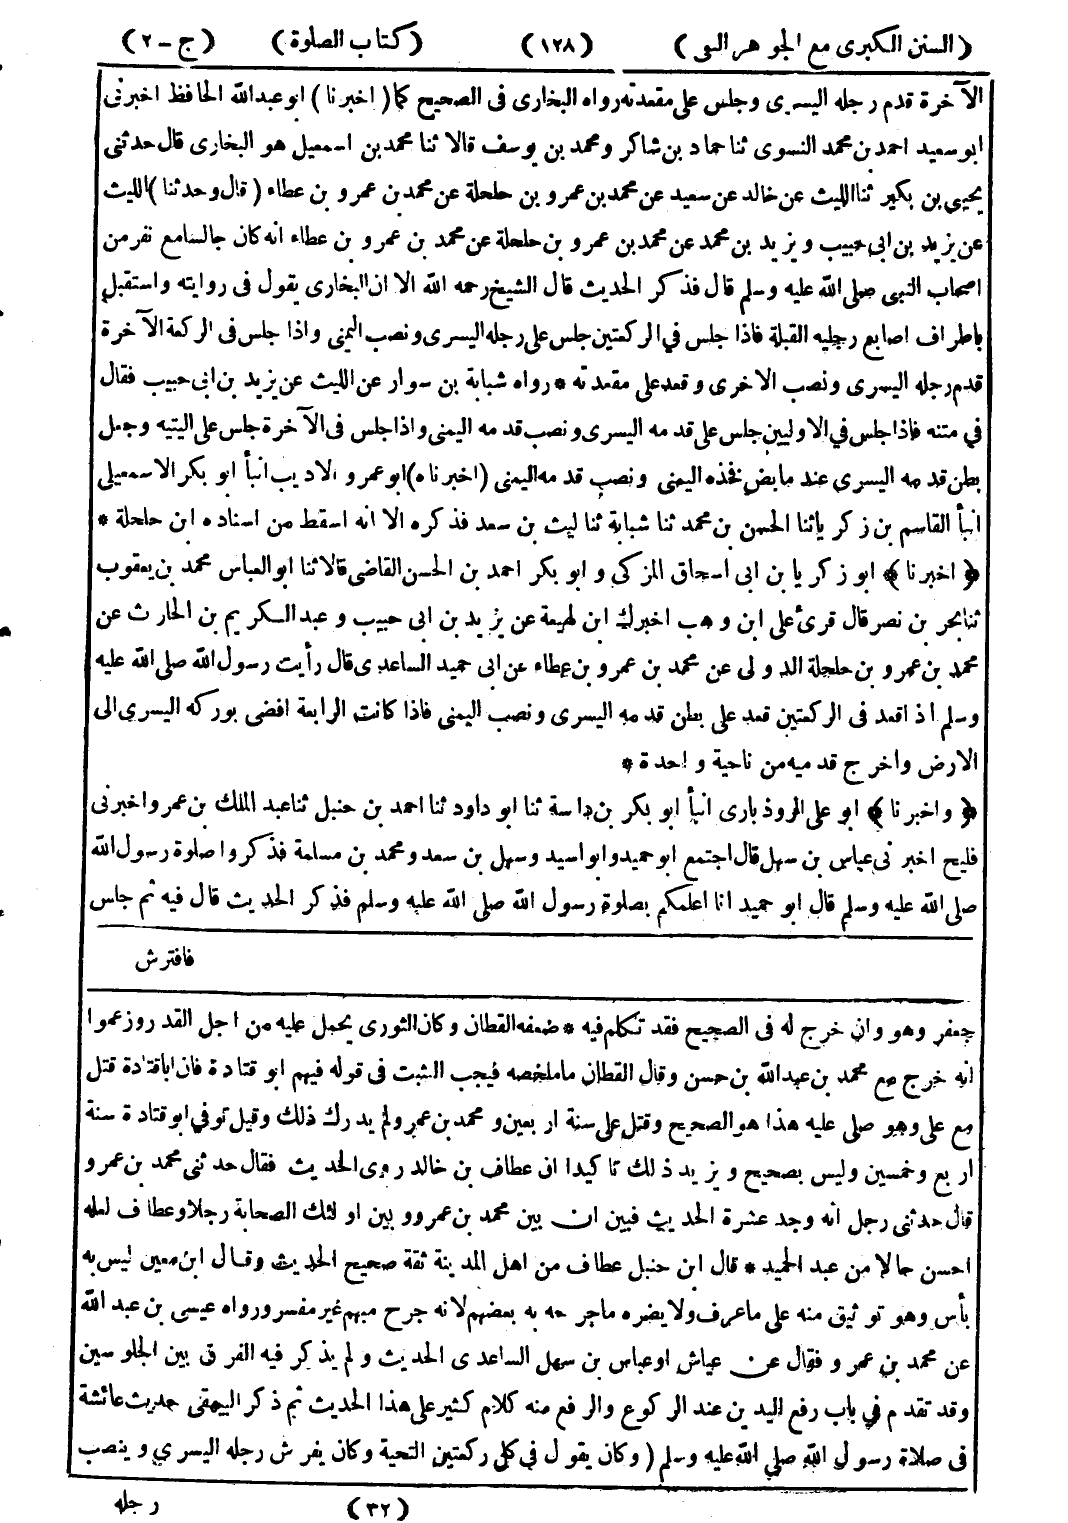 (السنن الكبرى مع الجوهر النقى) (١٢٨) (كتاب الصلوة) (ج-٢)
الآخرة قدم رجله اليسرى وجلس على مقعدته رواه البخارى فى الصحيح كما (اخبرنا) ابو عبد الله الحافظ اخبرنى
ابو سعيد احمد بن محمد النسوى ثنا حماد بن شاكر ومحمد بن يوسف قالا ثنا محمد بن اسمعيل هو البخارى قال حدثنى
يحيى بن بكير ثنا الليث عن خالد عن سعيد عن محمد بن عمرو بن حلحلة عن محمد بن عمرو بن عطاء (قال وحدثنا) الليث
عن يزيد بن ابى حبيب ويزيد بن محمد عن محمد بن عمرو بن حلحلة عن محمد بن عمرو بن عطاء انه كان جالسا مع نفر من
اصحاب النبى صلى الله عليه وسلم قال فذكر الحديث قال الشيخ رحمه الله الا ان البخارى يقول فى روايته واستقبل
باطراف اصابع رجليه القبلة فاذا جلس في الركعتين جلس على رجله اليسرى ونصب اليمنى واذا جلس فى الركعة الآخرة
قدم رجله اليسرى ونصب الاخرى وقعد على مقعدته * رواه شبابة بن سوار عن الليث عن يزيد بن ابى حبيب فقال
في متنه فاذا جلس في الاوليين جلس على قدمه اليسرى ونصب قدمه اليمنى واذا جلس فى الآخرة جلس على اليتيه وجعل
بطن قدمه اليسرى عند مابض فخذه اليمنى ونصب قدمه اليمنى (اخبرناه) ابو عمرو الاديب انبأ ابو بكر الاسمعيلى
انبأ القاسم بن زكريا ثنا الحسن بن محمد ثنا شبابة ثنا ليث بن سعد فذكره الا انه اسقط من اسناده ابن حلحلة *
﴿اخبرنا﴾ ابو زكريا بن ابى اسحاق المزكى وابو بكر احمد بن الحسن القاضى قالا ثنا ابو العباس محمد بن يعقوب
ثنا بحر بن نصر قال قرئ على ابن وهب اخبرك ابن لهيعة عن يزيد بن ابى حبيب وعبد الكريم بن الحارث عن
محمد بن عمرو بن حلحلة الدولى عن محمد بن عمرو بن عطاء عن ابى حميد الساعدى قال رأيت رسول الله صلى الله عليه
وسلم اذا قعد فى الركعتين قعد على بطن قدمه اليسرى ونصب اليمنى فاذا كانت الرابعة افضى بوركه اليسرى الى
الارض واخرج قدميه من ناحية واحدة *
﴿واخبرنا﴾ ابو على الروذبارى انبأ ابو بكر بن داسة ثنا ابو داود ثنا احمد بن حنبل ثنا عبد الملك بن عمر واخبرنى
فليح اخبرنى عباس بن سهل قال اجتمع ابو حميد وابو اسيد وسهل بن سعد ومحمد بن مسلمة فذكروا صلوة رسول الله
صلى الله عليه وسلم قال ابو حميد انا اعلمكم بصلوة رسول الله صلى الله عليه وسلم فذكر الحديث قال فيه ثم جلس
فافترش
جعفر وهو وان خرج له فى الصحيح فقد تكلم فيه * ضعفه القطان وكان الثورى يحمل عليه من اجل القدر وزعموا
انه خرج مع محمد بن عبد الله بن حسن وقال القطان ما ملخصه فيجب التثبت فى قوله فيهم ابو قتادة فان اباقتادة قتل
مع على وهو صلى عليه هذا هو الصحيح وقتل على سنة اربعين ومحمد بن عمرو لم يدرك ذلك وقيل توفي ابو قتادة سنة
اربع وخمسين وليس بصحيح ويزيد ذلك تاكيدا ان عطاف بن خالد روى الحديث فقال حدثنى محمد بن عمرو
قال حدثنى رجل انه وجد عشرة الحديث فبين ان بين محمد بن عمرو وبين اولئك الصحابة رجلا وعطاف لعله
احسن حالا من عبد الحميد * قال ابن حنبل عطاف من اهل المدينة ثقة صحيح الحديث وقال ابن معين ليس به
بأس وهو توثيق منه على ما عرف ولا يضره ما جرحه به بعضهم لانه جرح مبهم غير مفسر ورواه عيسى بن عبد الله
عن محمد بن عمرو فقال عن عياش او عباس بن سهل الساعدى الحديث ولم يذكر فيه الفرق بين الجلوسين
وقد تقدم في باب رفع اليدين عند الركوع والرفع منه كلام كثير على هذا الحديث ثم ذكر البيهقى حديث عائشة
فى صلاة رسول الله صلي الله عليه وسلم (وكان يقول فى كل ركعتين التحية وكان يفرش رجله اليسري وينصب
(٣٢) رجله